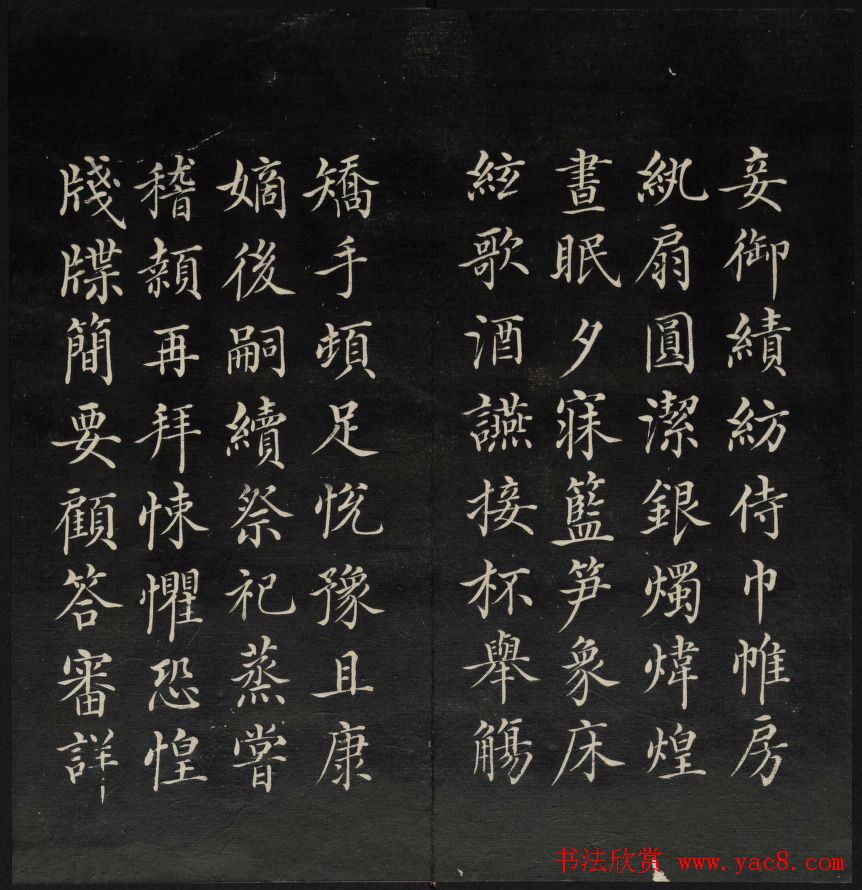 妾御績紡侍巾帷房
紈扇圓潔銀燭煒煌
晝眠夕寐籃笋象床
絃歌酒讌接杯舉觴
矯手頓足悅豫且康
嫡後嗣續祭祀蒸嘗
稽顙再拜悚懼恐惶
牋牒簡要顧答審詳
书法欣赏 www.yac8.com